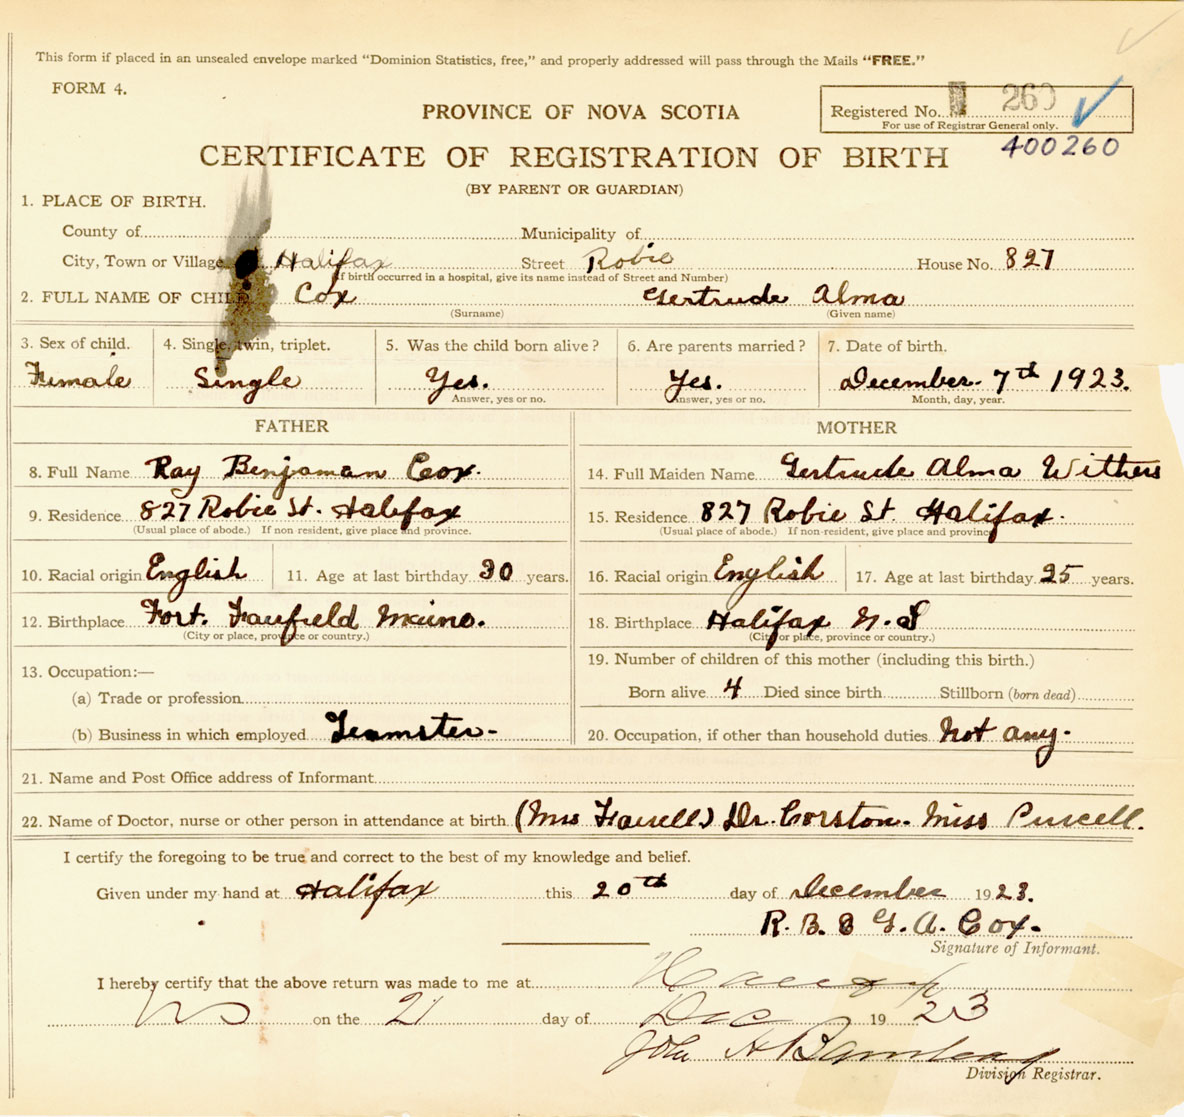 This form if placed in an unsealed envelope marked "Dominion Statistics, free," and properly addressed will pass through the Mails "FREE."
FORM 4.
PROVINCE OF NOVA SCOTIA
Registered No. 260
For use of Registrar General only.
400260
CERTIFICATE OF REGISTRATION OF BIRTH
(BY PARENT OR GUARDIAN)
1. PLACE OF BIRTH.
County of Municipality of
City, Town or Village Halifax Street Robie House No. 827
(If birth occurred in a hospital, give its name instead of Street and Number)
2. FULL NAME OF CHILD Cox Gertrude Alma
(Surname) (Given name)
3. Sex of child. 4. Single, twin, triplet. 5. Was the child born alive? 6. Are parents married? 7. Date of birth.
Female Single Yes. Yes. December. 7th 1923.
Answer, yes or no. Answer, yes or no. Month, day, year.
FATHER MOTHER
8. Full Name Ray Benjaman Cox. 14. Full Maiden Name Gertrude Alma Withers
9. Residence 827 Robie St. Halifax 15. Residence 827 Robie St. Halifax.
(Usual place of abode.) If non-resident, give place and province. (Usual place of abode.) If non-resident, give place and province
10. Racial origin English 11. Age at last birthday 30 years. 16. Racial origin English 17. Age at last birthday 25 years.
12. Birthplace Fort. Fairfield Maine. 18. Birthplace Halifax N.S
(City or place, province or country.) (City or place, province or country.)
13. Occupation:— 19. Number of children of this mother (including this birth.)
(a) Trade or profession Born alive 4 Died since birth Stillborn (born dead)
(b) Business in which employed Teamster- 20. Occupation, if other than household duties Not any.
21. Name and Post Office address of Informant
22. Name of Doctor, nurse or other person in attendance at birth (Mrs Farrell) Dr. Corston. Miss Purcell.
I certify the foregoing to be true and correct to the best of my knowledge and belief.
Given under my hand at Halifax this 20th day of December 1923.
R. B. & G. A. Cox.
Signature of Informant.
I hereby certify that the above return was made to me at
on the 21 day of Dec 1923
John H
Division Registrar.